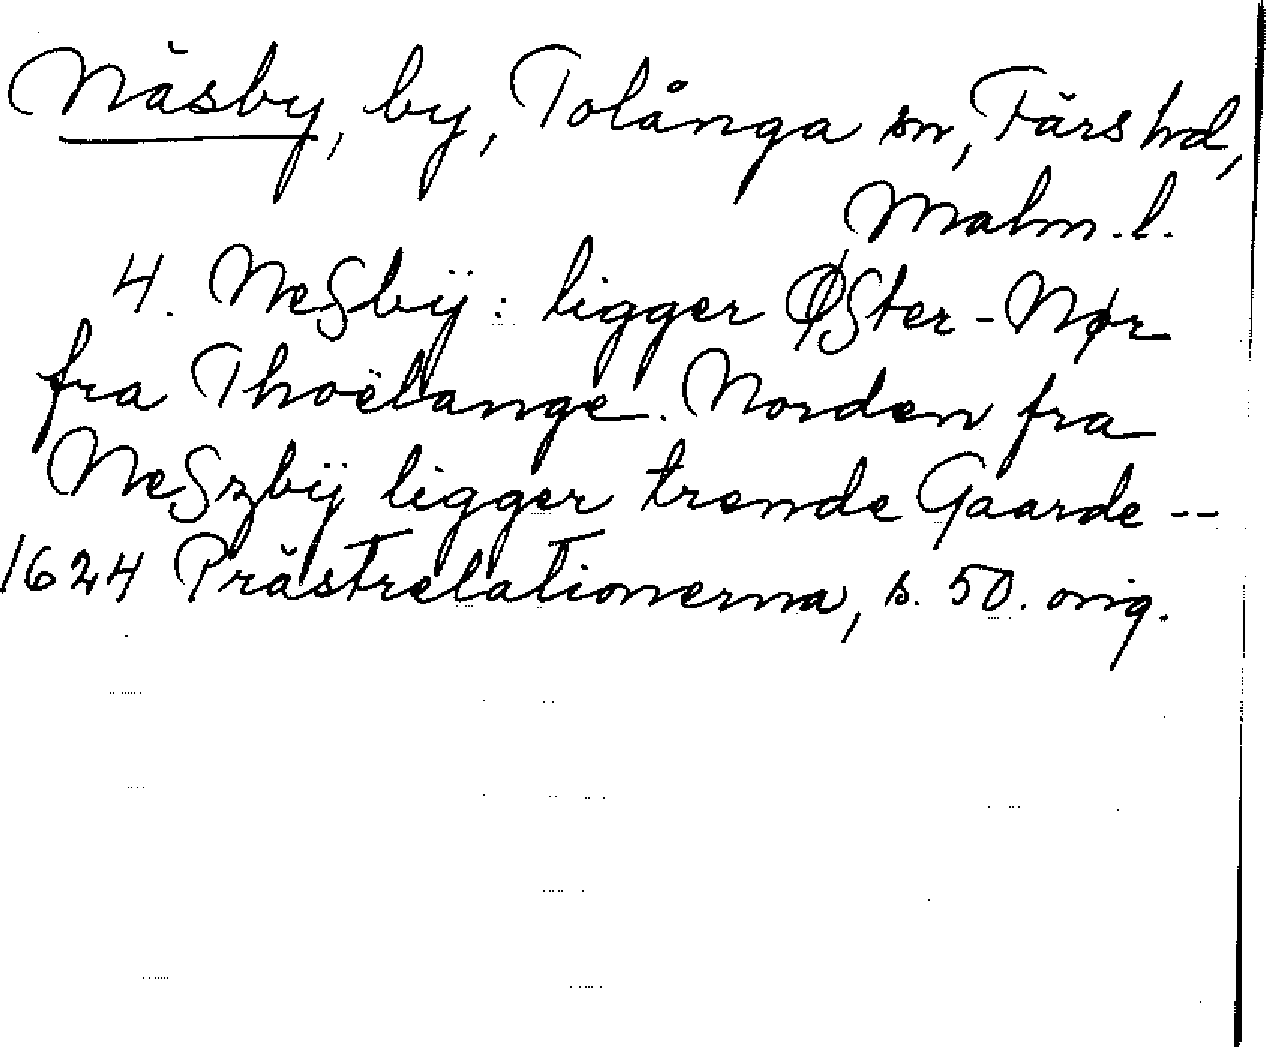 Näsby, by, Tolånga sn, Färs hd,
Malm. l.
4. Nesbÿ: ligger Øster-Nør
fra Thoëlange. Norden fra
Neszbÿ ligger trende Gaarde --
1624 Prästrelationerna, s. 50. orig.